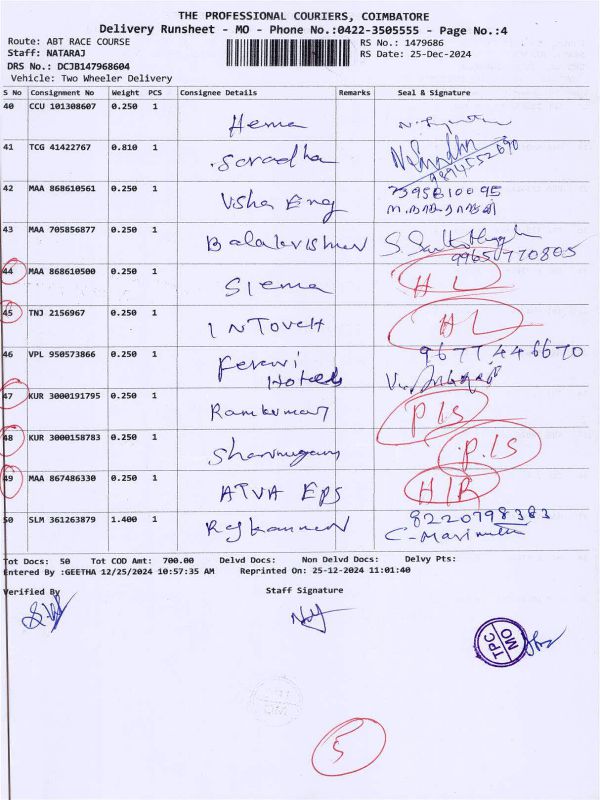 THE PROFESSIONAL COURIERS, COIMBATORE
Delivery Runsheet - MO - Phone No.:0422-3505555 - Page No.:4
Route: ABT RACE COURSE RS No.: 1479686
Staff: NATARAJ RS Date: 25-Dec-2024
DRS No.: DCJB147968604
Vehicle: Two Wheeler Delivery
S No Consignment No Weight PCS Consignee Details Remarks Seal & Signature
40 CCU 101308607 0.250 1 Hema
41 TCG 41422767 0.810 1 Saradha 9894552690
42 MAA 868610561 0.250 1 Usha Eng 7395810095
43 MAA 705856877 0.250 1 Balakrishnan 9965770805
44 MAA 868610500 0.250 1 Siema HL
45 TNJ 2156967 0.250 1 INTOUCH HL
46 VPL 950573866 0.250 1 Hotels 9677446670
47 KUR 3000191795 0.250 1 Ramkumar P/S
48 KUR 3000158783 0.250 1 Shanmugam P/S
49 MAA 867486330 0.250 1 ATVA EPS
50 SLM 361263879 1.400 1 Rajkannan 8220798383
C-Marimuthu
Tot Docs: 50 Tot COD Amt: 700.00 Delvd Docs: Non Delvd Docs: Delvy Pts:
Entered By :GEETHA 12/25/2024 10:57:35 AM Reprinted On: 25-12-2024 11:01:40
Verified By Staff Signature
TPC
MO
5